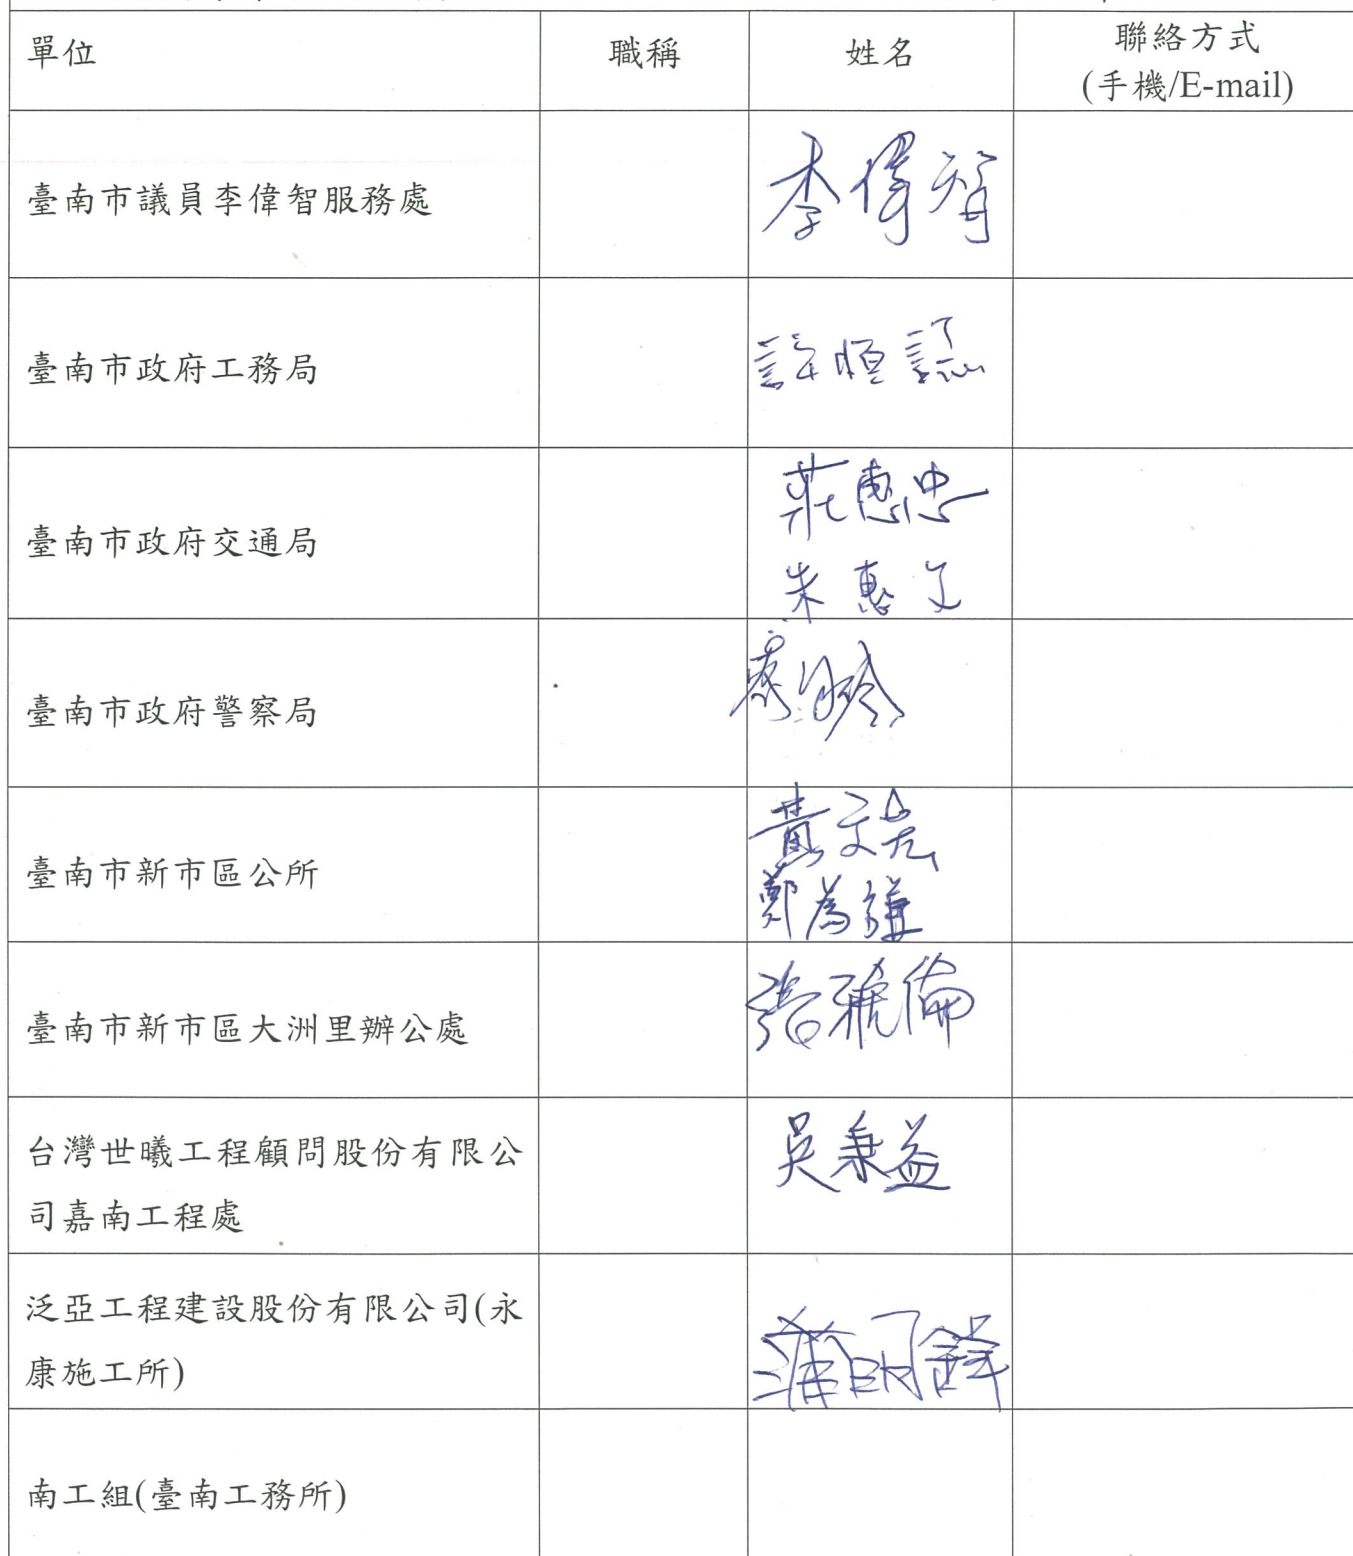 單位 職稱 姓名 聯絡方式
(手機/E-mail)
臺南市議員李偉智服務處 李偉智
臺南市政府工務局 許恒誌
臺南市政府交通局 莊惠忠
朱惠文
臺南市政府警察局
臺南市新市區公所 黃文
鄭為謙
臺南市新市區大洲里辦公處 張琥倫
台灣世曦工程顧問股份有限公 吳秉益
司嘉南工程處
泛亞工程建設股份有限公司(永
康施工所) 蒲明鋒
南工組(臺南工務所)